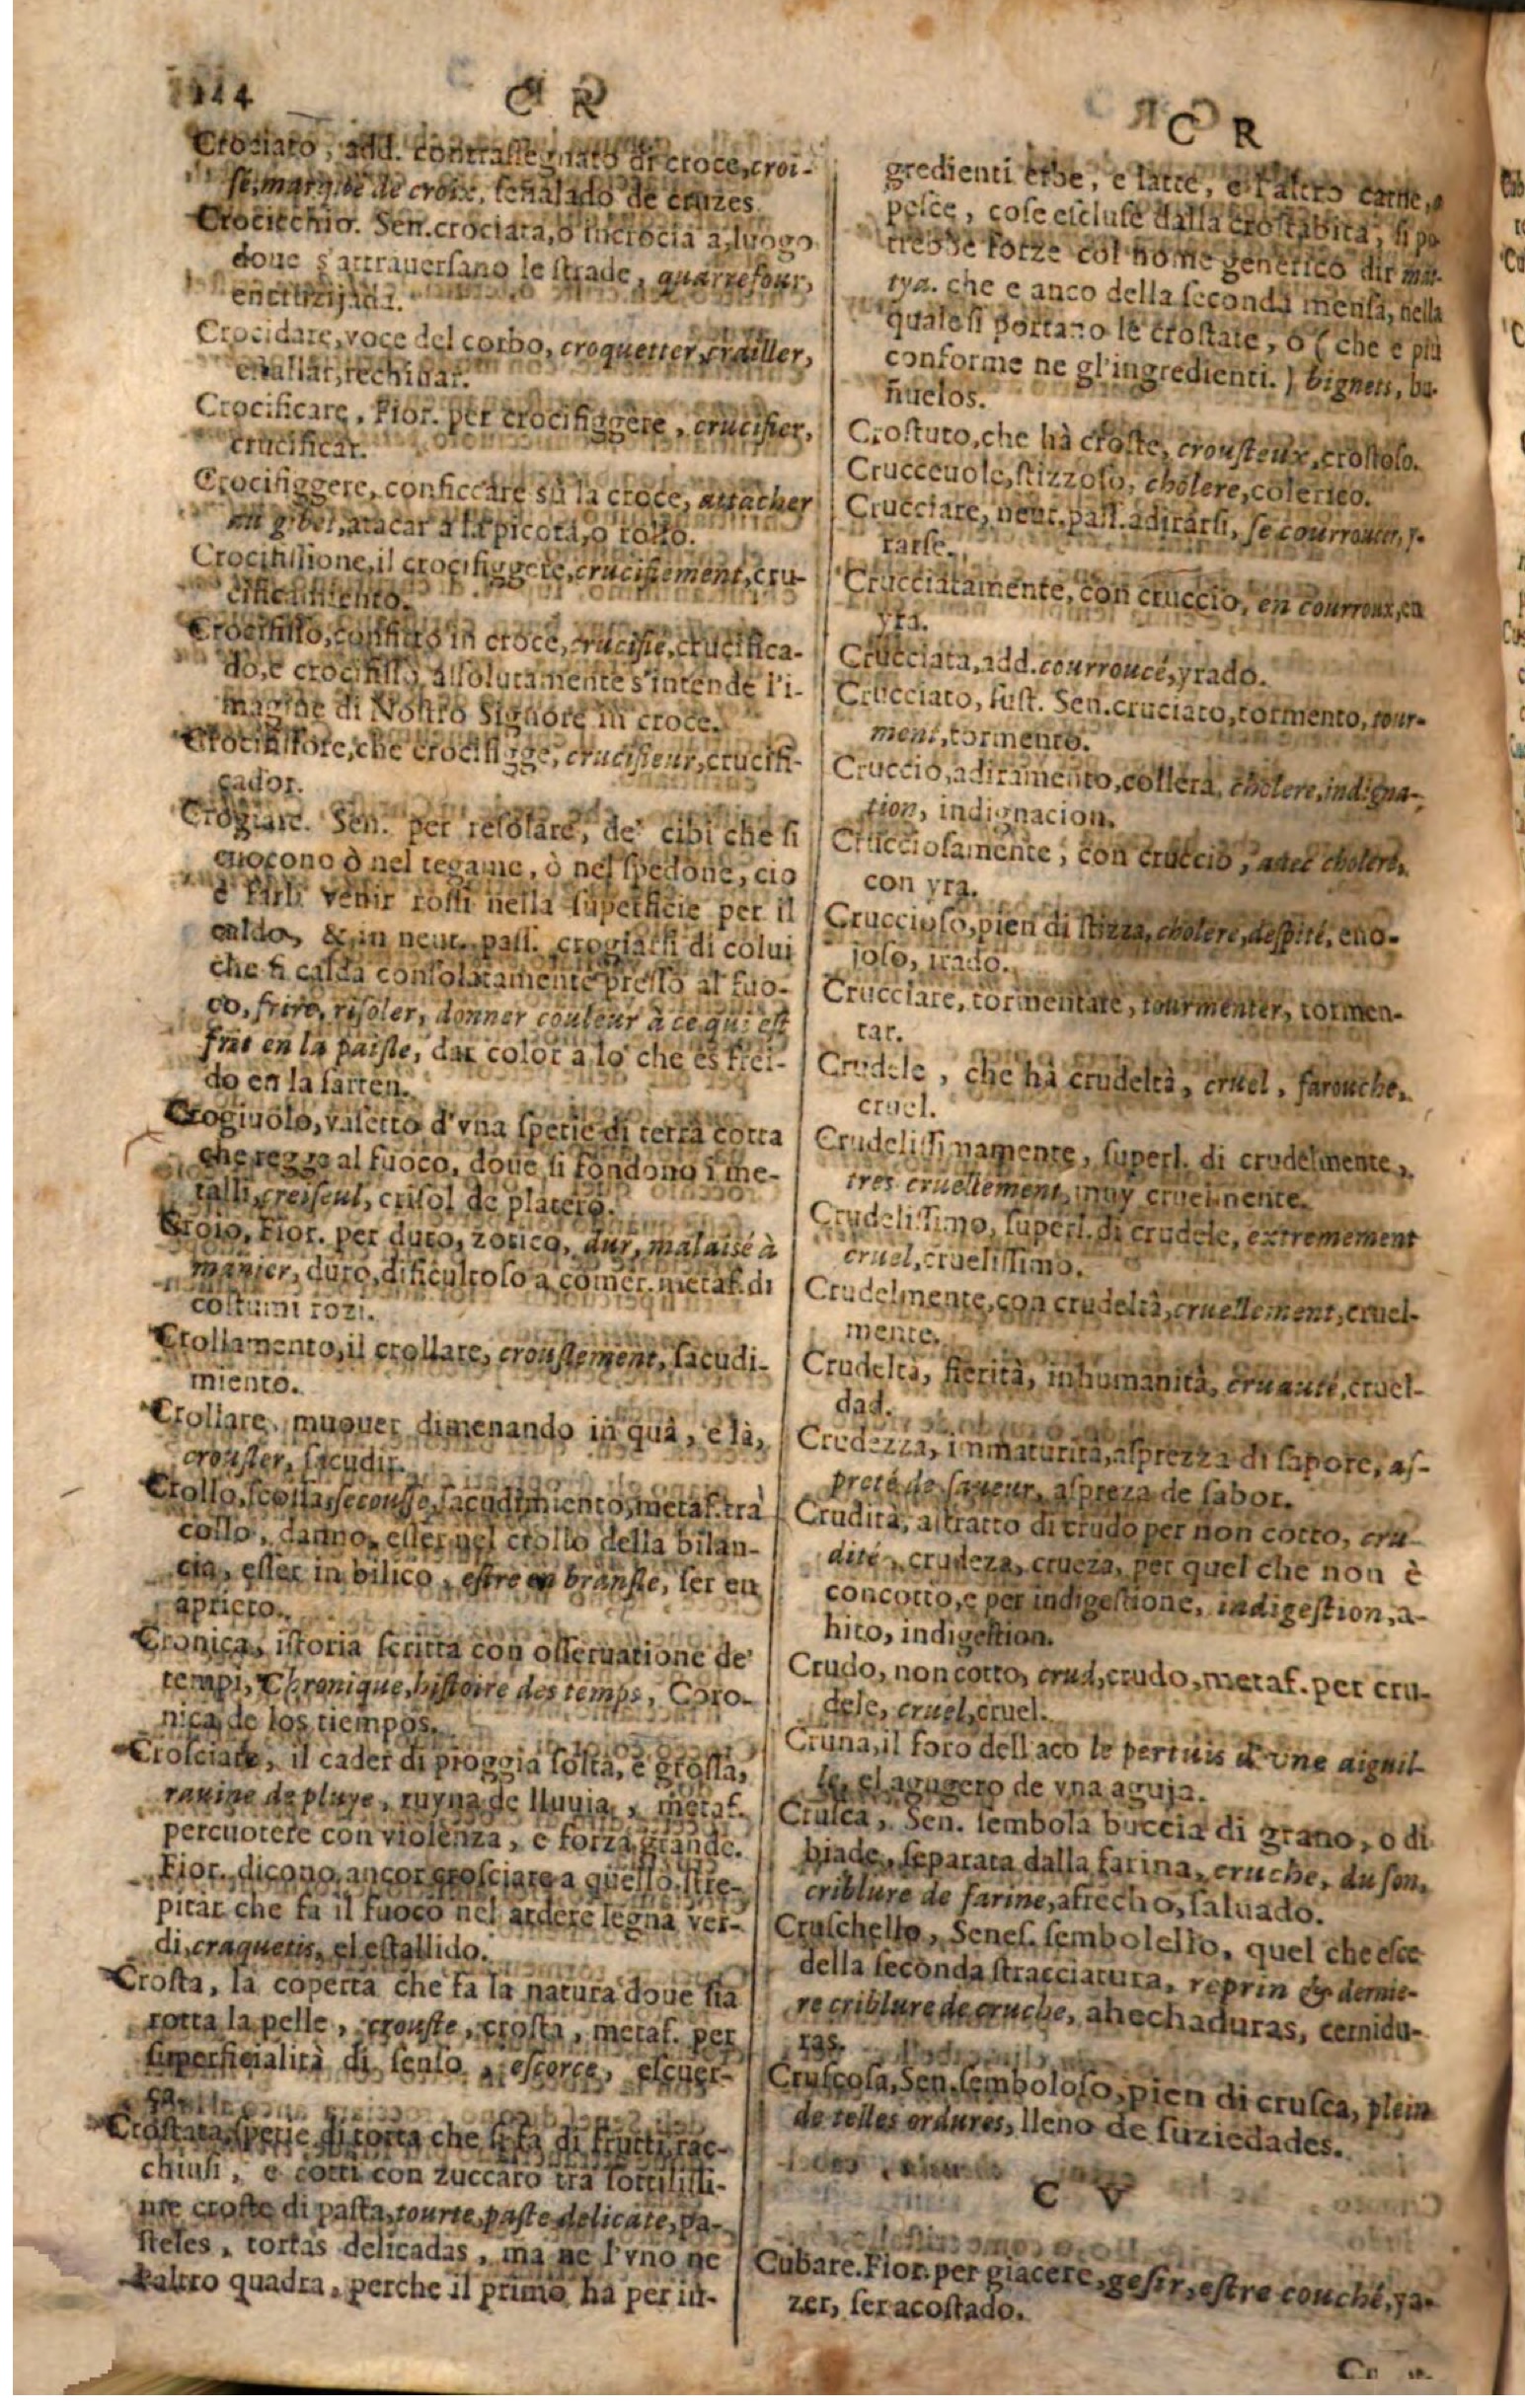 C R
Crociato, add. contrassegnato di croce, croi-
sé, marqué de croix, señalado de cruzes.
Crocicchio. Sen. crociata, o incrocia a, luogo
doue s'attrauersano le ſtrade, quarrefour,
encruzijada.
Crocidare, voce del corbo, croquetter, crailler,
rechinar.
Crocificare, Fior. per crocifiggere, crucifier,
crucificar.
Crocifiggere, conficcare sù la croce, attacher
au gibet, atacar a la picota, o rollo.
Crocifiſſione, il crocifiggere, crucifiement, cru-
cificamiento.
Crocifiſſo, confitto in croce, crucifié, crucifica-
do, e crocifiſſo, aſſolutamente s'intende l'i-
magine di Noſtro Signore in croce.
Crocifiſſore, che crocifigge, crucifieur, crucifi-
cador.
Crogiare. Sen. per roſolare, de' cibi che ſi
cuocono ò nel tegame, ò nel ſpedone, cio
è farli venir roſſi nella ſuperficie per il
caldo, & in neut. paſſ. crogiarſi di colui
che ſi calda conſolatamente preſſo al fuo-
co, frire, riſoler, donner couleur à ce qui eſt
frit en la paiſle, dar color a lo che es frei-
do en la ſarten.
Crogiuolo, vaſetto d'vna ſpetie di terra cotta
che regge al fuoco, doue ſi fondono i me-
talli, creiſeul, criſol de platero.
Croio, Fior. per duro, zotico, dur, malaisé à
manier, duro, dificultoſo a comer. metaf. di
coſtumi rozi.
Crollamento, il crollare, crouſlement, ſacudi-
miento.
Crollare, muouer dimenando in quà, e là,
crouſler, ſacudir.
Crollo, ſcoſſa, ſecouſſe, ſacudimiento, metaf. trà
collo, danno, eſſer nel crollo della bilan-
cia, eſſer in bilico, eſtre en branſle, ſer en
aprieto.
Cronica, iſtoria ſcritta con oſſeruatione de'
tempi, Chronique, hiſtoire des temps, Coro-
nica de los tiempos.
Croſciare, il cader di pioggia folta, e groſſa,
rauine de pluye, ruyna de lluuia, metaf.
percuotere con violenza, e forza grande.
Fior. dicono ancor croſciare a quello ſtre-
pitar che fa il fuoco nel ardere legna ver-
di, craquetis, el eſtallido.
Croſta, la coperta che fa la natura doue ſia
rotta la pelle, crouſte, croſta, metaf. per
ſuperficialità di ſenſo, eſcorce, eſcuer-
ça.
Croſtata, ſpetie di torta che ſi fa di frutti rac-
chiuſi, e cotti con zuccaro tra ſottiliſſi-
me croſte di paſta, tourte, paſte delicate, pa-
ſteles, tortas delicadas, ma ne l'vno ne
l'altro quadra, perche il primo ha per in-
C R
gredienti erbe, e latte, e l'altro carne, o
peſce, coſe eſcluſe dalla croſtabita, ſi po
trebbe forze col nome generico dir
tya. che e anco della ſeconda menſa, nella
quale ſi portano le croſtate, ò (che e più
conforme ne gl'ingredienti.) bignets, bu-
ñuelos.
Croſtuto, che hà croſte, crouſteux, croſtoſo.
Crucceuole, ſtizzoſo, cholere, colerico.
Crucciare, neut. paſſ. adirarſi, ſe courroucer, y-
rarſe.
Crucciatamente, con cruccio, en courroux, en
yra.
Crucciata, add. courroucé, yrado.
Crucciato, ſuſt. Sen. cruciato, tormento, tour-
ment, tormento.
Cruccio, adiramento, collera, cholere, indigna-
tion, indignacion.
Crucciosamente, con cruccio, auec cholere,
con yra.
Crucciosо, pien di ſtizza, cholere, deſpité, eno-
joſo, irado.
Crucciare, tormentare, tourmenter, tormen-
tar.
Crudele, che hà crudeltà, cruel, farouche,
cruel.
Crudeliſſimamente, ſuperl. di crudelmente,
tres cruellement, muy cruelmente.
Crudeliſſimo, ſuperl. di crudele, extremement
cruel, crueliſſimo.
Crudelmente, con crudeltà, cruellement, cruel-
mente.
Crudeltà, fierità, inhumanità, cruauté, cruel-
dad.
Crudezza, immaturità, aſprezza di ſapore, aſ-
preté de ſaueur, aſpreza de ſabor.
Crudità, aſtratto di crudo per non cotto, cru-
dité, crudeza, crueza, per quel che non è
concotto, e per indigeſtione, indigeſtion, a-
hito, indigeſtion.
Crudo, non cotto, crud, crudo, metaf. per cru-
dele, cruel, cruel.
Cruna, il foro dell aco le pertuis d'vne aiguil-
le, el agugero de vna aguja.
Cruſca, Sen. ſembola buccia di grano, o di
biade, ſeparata dalla farina, cruche, du ſon,
criblure de farine, afrecho, ſaluado.
Cruſchello, Seneſ. ſembolello, quel che eſce
della ſeconda ſtracciatura, reprin & dernie-
re criblure de cruche, ahechaduras, cernidu-
ras.
Cruſcoſa, Sen. ſemboloſo, pien di cruſca, plein
de telles ordures, lleno de ſuziedades.
C V
Cubare. Fior. per giacere, geſir, eſtre couché, ya-
zer, ſer acoſtado.